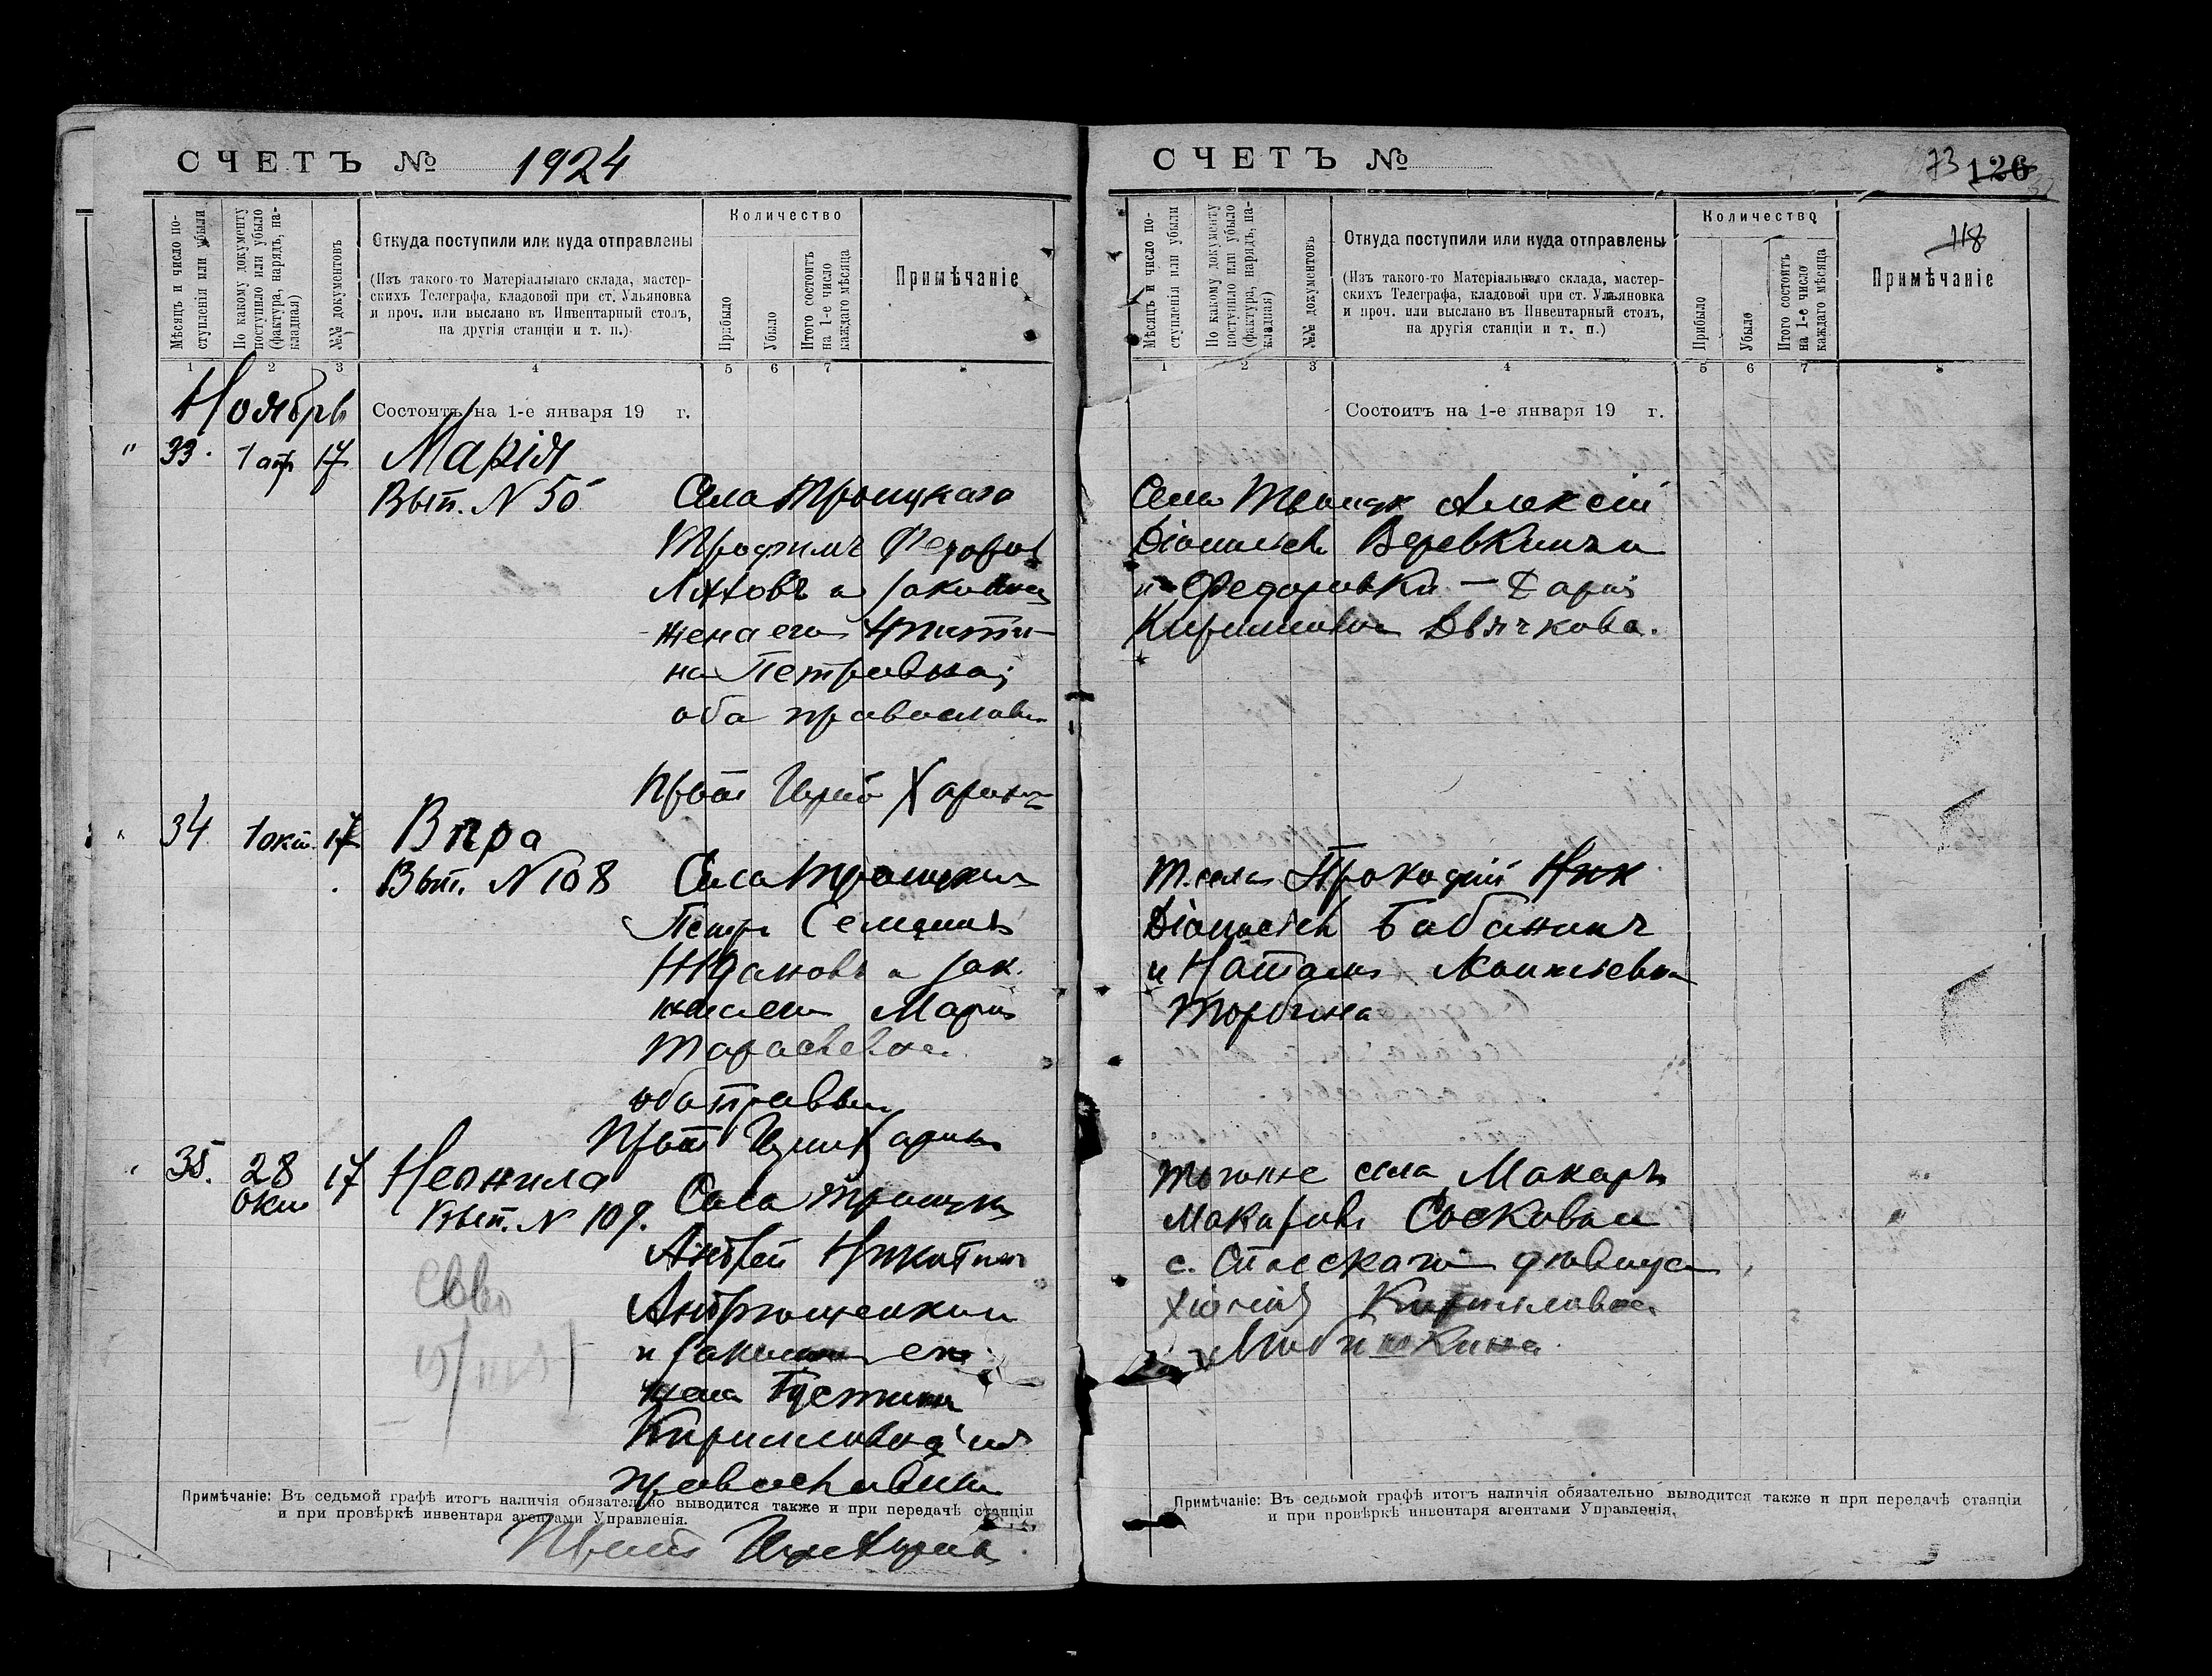 СЧЕТЪ № 1924
Мѣсяцъ и число поступленія или убыли
По какому документу поступило или убыло (фактура, нарядъ, накладная)
№№ документовъ
Откуда поступили или куда отправлены
(Изъ такого-то Матеріальнаго склада, мастерскихъ Телеграфа, кладовой при ст. Ульяновка и проч. или выслано въ Инвентарный столъ, на другія станціи и т. п.)
Количество
Прибыло
Убыло
Итого состоитъ на 1-е число каждаго мѣсяца
Примѣчаніе
1 2 3 4 5 6 7
Ноябрь
Состоитъ на 1-е января 19 г.
" 33. 1 17 Марія
Вып. N 50 Села Троицкаго
Трофимъ Федоров
и законная
жена его
на Петровна;
оба православн
Прот Харин
34 1 окт. 17 Вѣра
Вып. N 108 Села Троицкаго
Петръ Семеновъ
Ждановъ и зак.
жена его Марія
Тарасьевна
оба правосл
Прот
35. 28 окт 17 Неонила
Вып. N 109. Села Троицк
Андрей Никитинъ
Андрющенки
и законная его
жена Устинья
Кирилловна
православны
Примѣчаніе: Въ седьмой графѣ итогъ наличія обязательно выводится также и при передачѣ станціи
и при провѣркѣ инвентаря агентами Управленія.
СЧЕТЪ №
73 126
118
Мѣсяцъ и число поступленія или убыли
По какому документу поступило или убыло (фактура, нарядъ, накладная)
№№ документовъ
Откуда поступили или куда отправлены
(Изъ такого-то Матеріальнаго склада, мастерскихъ Телеграфа, кладовой при ст. Ульяновка и проч. или выслано въ Инвентарный столъ, на другія станціи и т. п.)
Количество
Прибыло
Убыло
Итого состоитъ на 1-е число каждаго мѣсяца
Примѣчаніе
1 2 3 4 5 6 7
Состоитъ на 1-е января 19 г.
Села Троицк Алексій
Діонисіев Веревкинъ
и Федоровки — Дарія
Кирилловна Двячкова.
Т. села Прокофій
Діонисіев Бабанинъ
и Наталія
Торбина
тогоже села Макаръ
Макаровъ Сосковъ и
с. Спасскаго дѣвица
Хіонія Кирилловна
Любишкина
Примѣчаніе: Въ седьмой графѣ итогъ наличія обязательно выводится также и при передачѣ станціи
и при провѣркѣ инвентаря агентами Управленія.